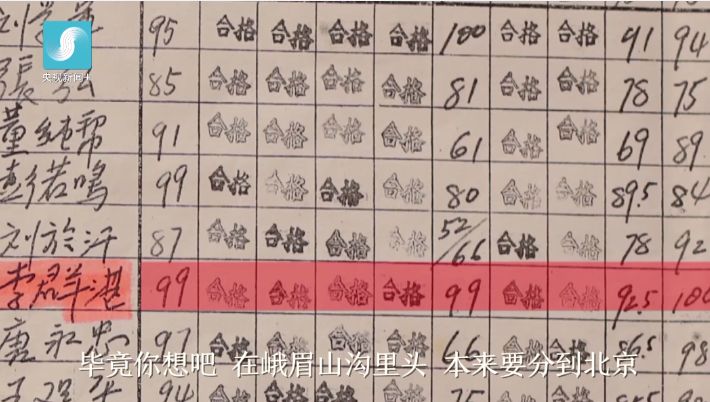 95 合格 合格 合格 合格 100 合格 合格 91 94
央视新闻
85 合格 合格 合格 合格 81 合格 合格 78 75
董纯帮 91 合格 合格 合格 合格 61 合格 合格 69 89
彭若鸣 99 合格 合格 合格 合格 80 合格 合格 89.5 84
刘於汗 87 合格 合格 合格 合格 52/66 合格 合格 78 92
李群湛 99 合格 合格 合格 合格 99 合格 合格 92.5 100
唐永忠 97 合格 合格 合格 合格 66 合格 合格 86.5 98
毕竟你想吧 在峨眉山沟里头 本来要分到北京
94 合格 合格 合格 合格 75 合格 合格